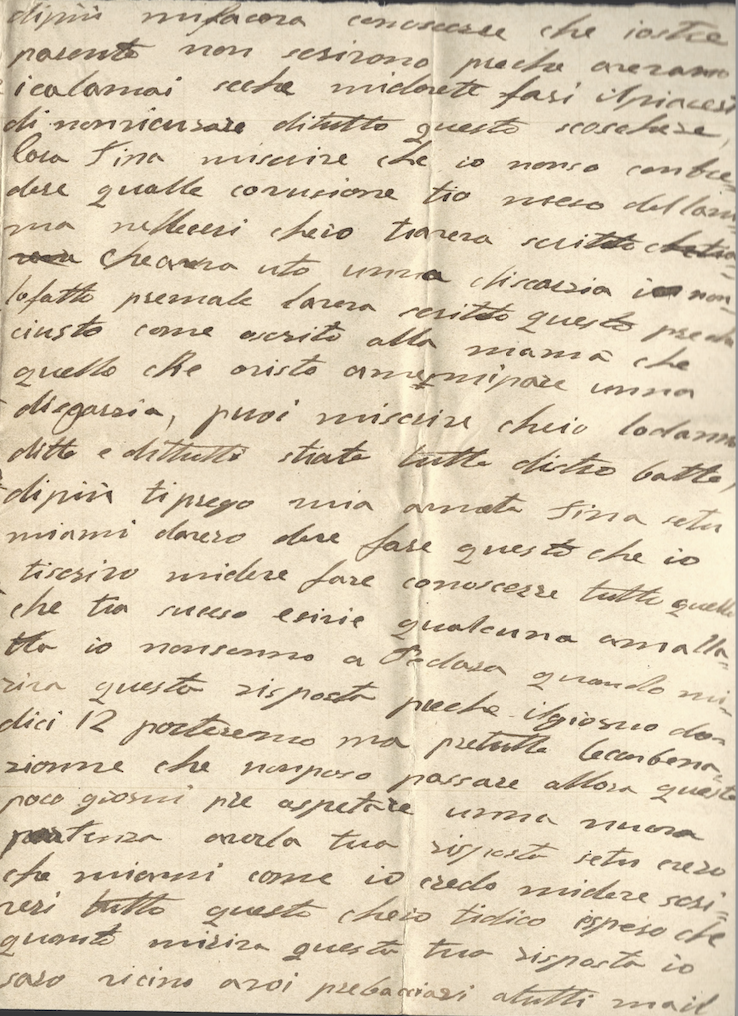 dipiù mifacora conoscerre che iostre
parento non scrirono preche averamo
icalamai seche miderete fari ilpiaceri
di nonricusare ditutto questo scoschere,
lora Fina miscrire che io nonso conbre=
dere qualle corusione tio meso dellam
ma nelleceri cheio tiarera scritto
chearera uto unna discarzia io non
lofatto premale larera scritto questo preche
ciusto come oscrito alla mamà che
quello che oristo amemipare unna
discarzia, puoi miscrire cheio lodanno
ditto e dittutti stiate tutte distro batte,
dipiù tiprego mia amata Fina setu
miami darero dere fare questo che io
tiscriro midere fare conoscerre tutto quello
che tia suceso esirie qualcuna amalla=
tta io nonsonno a Pedara quando mi=
rira questa risposta preche ilgiorno do=
dici 12 porteremo ma pretutte leconbena=
zionne che nonposo passare allora questo
poco giorni pre aspetare unna nuora
partenza averla tua risposta setu rero
che miami come io credo midere scri=
reri tutto questo cheio tidico espeso che
quanto mirira questa tua risposta io
saro ricino aroi prebacciari atutti mail